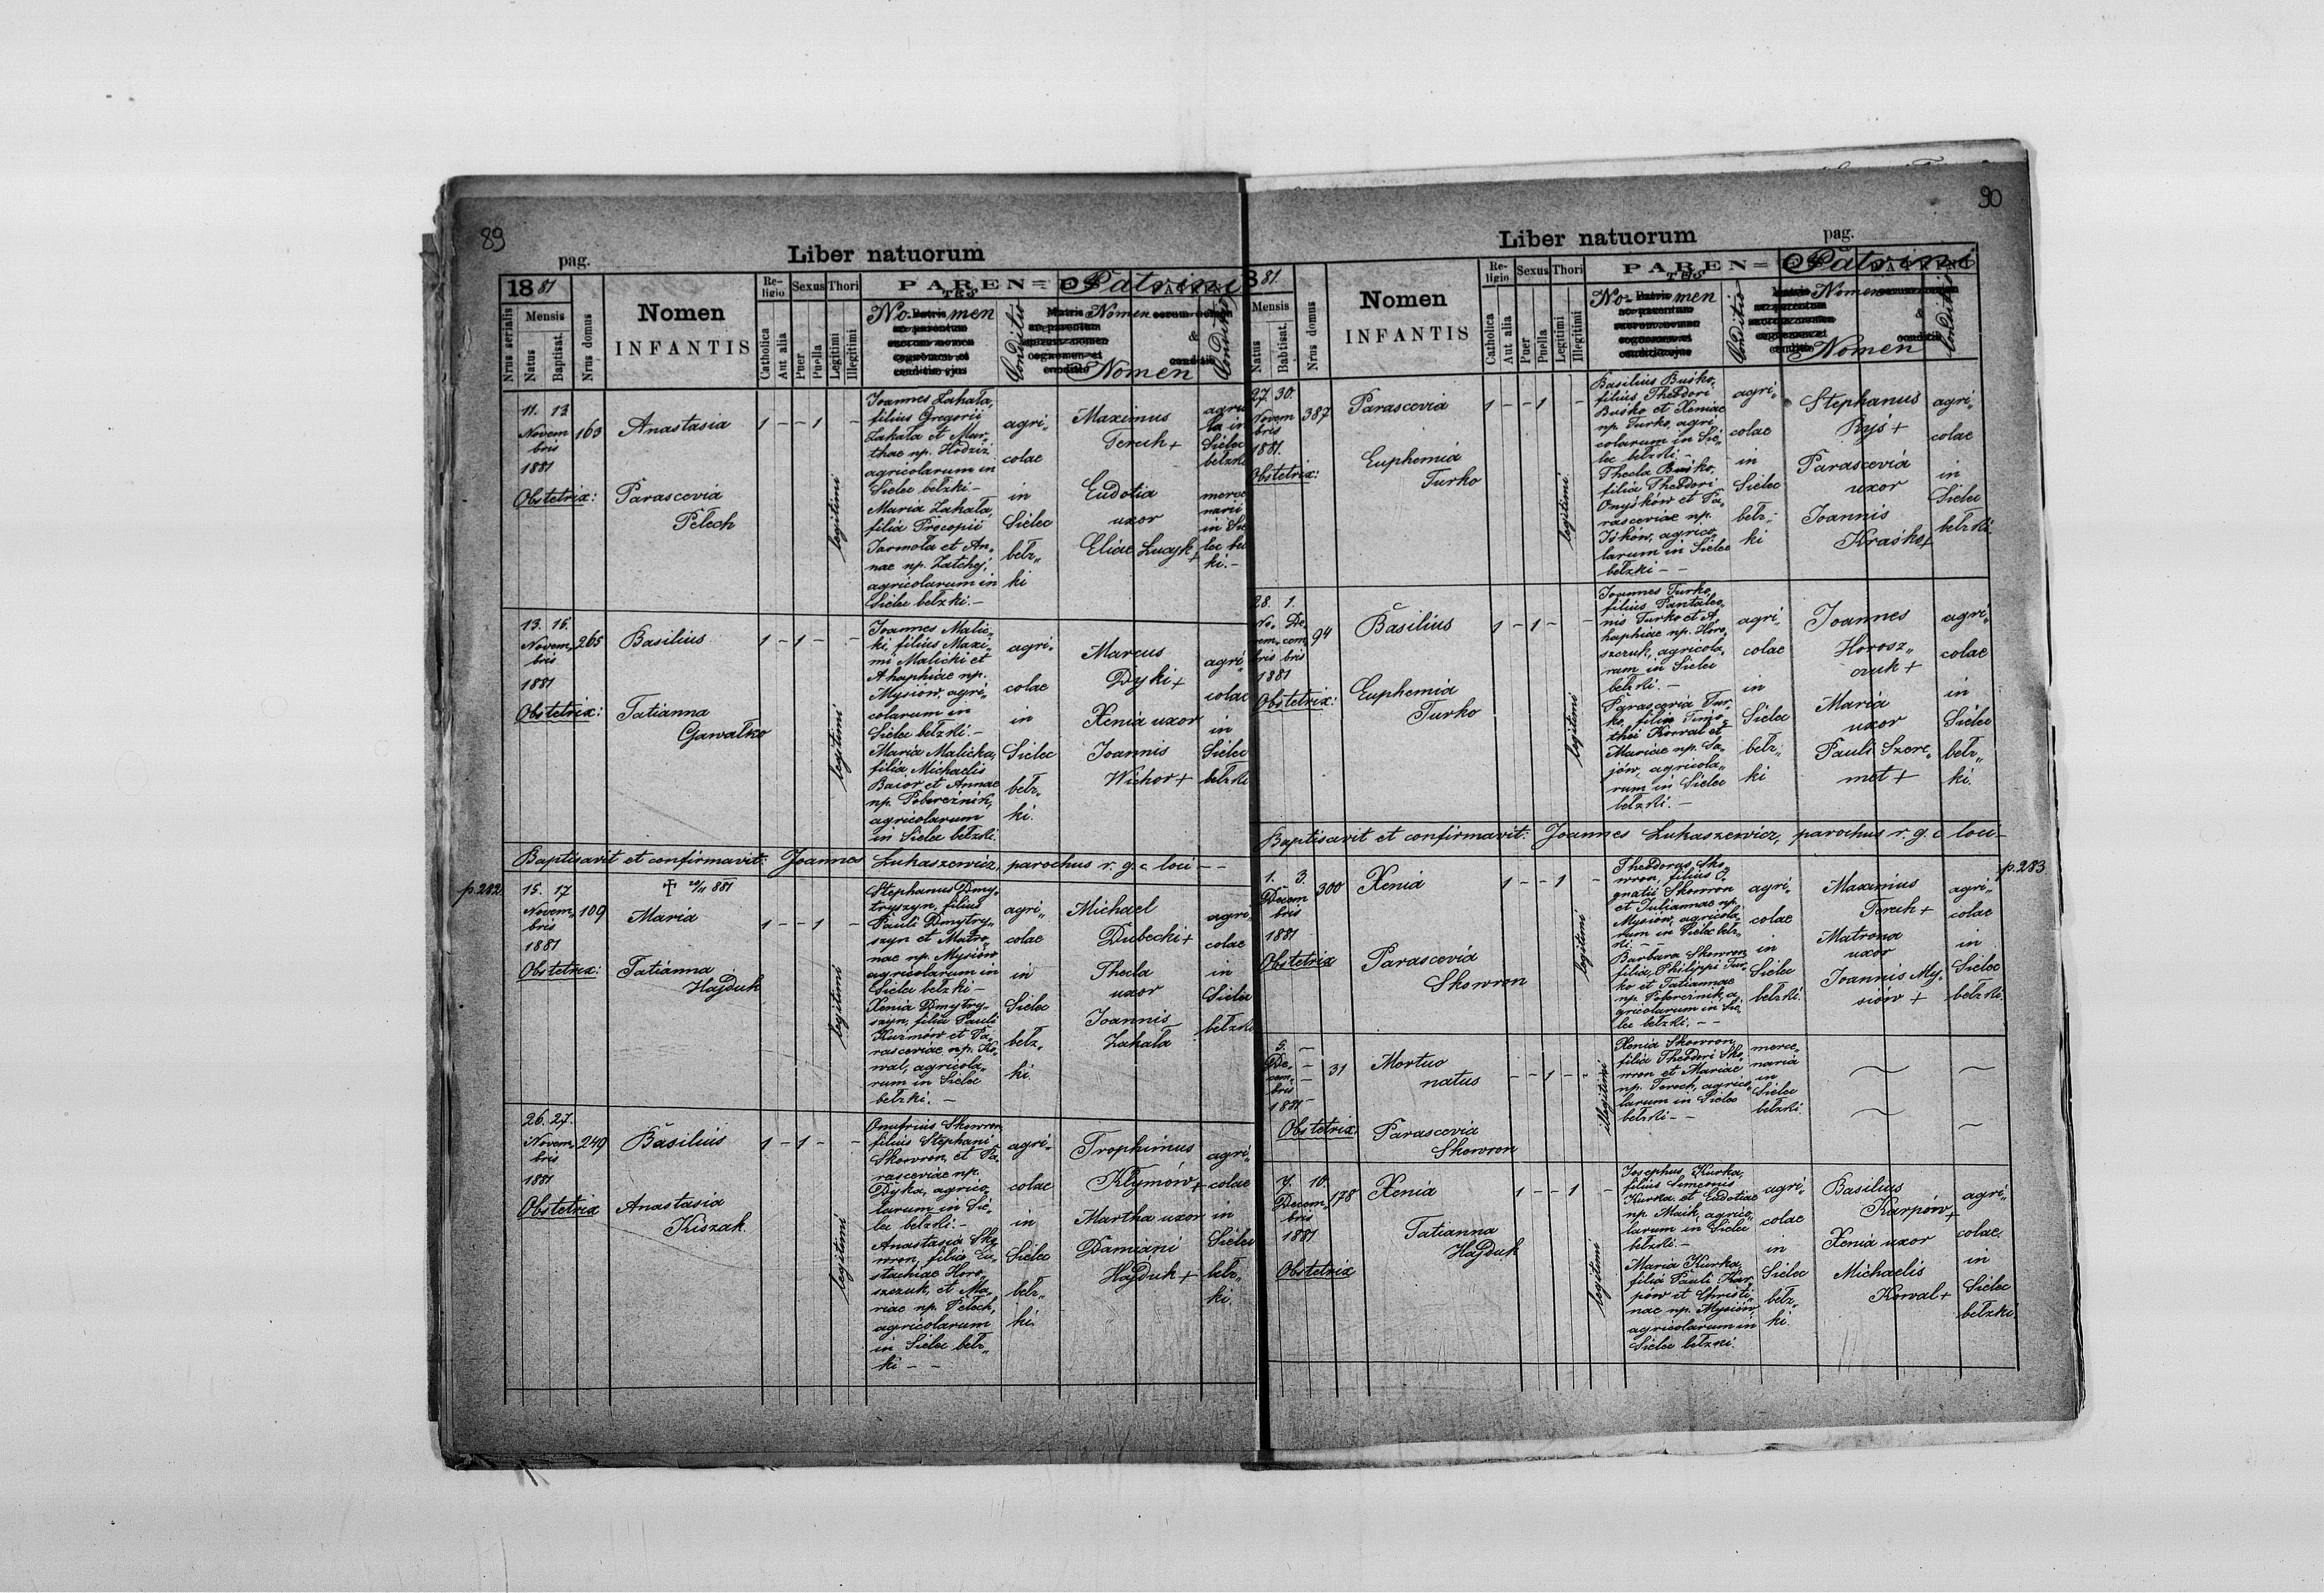 89
pag.
Liber natuorum
1881
Nrus serialis
Mensis
Natus
Baptisat.
Nrus domus
Nomen
INFANTIS
Re-
ligio
Catholica
Aut alia
Sexus
Puer
Puella
Thori
Legitimi
Illegitimi
PAREN=
TES
Patrini
Nomen
Conditio
Nomen
&
Nomen
Conditio
11. 13
Novem
bris
1881
163
Anastasia
1 - - 1 -
legitimi
Obstetrix:
Parascevia
Pełech
Joannes Zahała,
filius Gregorii
Zahała et Mar„
thae np. Hodziż
agricolarum in
Sielec bełzki –
Maria Zahała,
filia Procopii
Jarmoła et An„
nae np. Zatchej,
agricolarum in
Sielec bełzki. –
agri„
colae
in
Sielec
bełz„
ki
Maximus
Terech +
Eudotia
uxor
Eliae Łucyk +
agrico
la in
Sielec
bełzki
merce
narii
in Sie
lec beł
ki. –
13. 15.
Novem„
bris
1881
265
Basilius
1 - 1 - -
legitimi
Obstetrix:
Tatianna
Gawałko
Joannes Malic„
ki, filius Maxi„
mi Malicki et
Ahaphiae np.
Mysiów, agri„
colarum in
Sielec bełzki. –
Maria Malicka,
filia Michaelis
Bacor et Annae
np. Pobereżnik,
agricolarum
in Sielec bełzki.
agri„
colae
in
Sielec
bełz„
ki.
Marcus
Dyki +
Xenia uxor
Joannis
Wichor +
agri„
colae
in
Sielec
bełzki
Baptisavit et confirmavit: Joannes Łukaszewicz, parochus r. g. c loci – –
p. 282.
15. 17
Novem„
bris
1881
109
Maria
1 - - 1 -
legitimi
Obstetrix:
Tatianna
Hajduk
Stephanus Dmy„
tryszyn, filius
Pauli Dmytry„
szyn et Matro„
nae np. Mysiów
agricolarum in
Sielec bełzki –
Xenia Dmytry„
szyn, filia Pauli
Kuźmów et Pa„
rasceviae np. Ko„
wal, agricola„
rum in Sielec
bełzki. –
agri„
colae
in
Sielec
bełz„
ki.
Michael
Dubecki +
Thecla
uxor
Joannis
Zahała
agri„
colae
in
Sielec
bełzki
26. 27.
Novem„
bris
1881
249
Basilius
1 - 1 - -
legitimi
Obstetrix
Anastasia
Kiszak
Onufrius Skowron,
filius Stephani
Skowron, et Pa„
rasceviae np.
Dyka, agrico„
larum in Sie„
lec bełzki. –
Anastasia Sko
wron, filia Eu„
stachiae Horo„
szczuk, et Ma„
riae np. Pełech,
agricolarum
in Sielec bełz„
ki – –
agri„
colae
in
Sielec
bełz„
ki.
Trophimus
Kłymów +
Martha uxor
Damiani
Hajduk +
agri„
colae
in
Sielec
bełz„
ki.
90
Liber natuorum
pag.
81.
Mensis
Natus
Babtisat.
Nrus domus
Nomen
INFANTIS
Re-
ligio
Catholica
Aut alia
Sexus
Puer
Puella
Thori
Legitimi
Illegitimi
PAREN=
TES
Patrini
Nomen
Conditio
Nomen
&
Nomen
Conditio
27. 30.
Novem
bris
1881.
387
Parascevia
1 - - 1 -
legitimi
Obstetrix:
Euphemia
Turko
Basilius Buśko,
filius Theodori
Buśko et Xeniae
np. Turko, agri„
colarum in Sie„
lec bełzki. –
Thecla Buśko,
filia Theodori
Onyśków et Pa„
rasceviae np.
Iśków, agrico„
larum in Sielec
bełzki – –
agri„
colae
in
Sielec
bełz„
ki
Stephanus
Ryś +
Parascevia
uxor
Joannis
Kraśko +
agri„
colae
in
Sielec
bełzki.
28. 1.
No. De„
vem„ cem„
bris bris
1881
94
Basilius
1 - 1 - -
legitimi
Obstetrix:
Euphemia
Turko
Joannes Turko,
filius Pantaleo„
nis Turko et A„
haphiae np. Horo„
szczuk, agricola„
rum in Sielec
bełzki. –
Parascevia Tur„
ko, filia Timo„
thei Kowal et
Mariae np. Sa„
jów, agricola„
rum in Sielec
bełzki. –
agri„
colae
in
Sielec
bełz„
ki
Joannes
Horosz„
czuk +
Maria
uxor
Pauli Szere„
met +
agri„
colae
in
Sielec
bełz„
ki.
Baptisavit et confirmavit: Joannes Łukaszewicz, parochus r. g. c loci –
p. 283.
1. 3.
Decem
bris
1881
300
Xenia
1 - - 1 -
legitimi
Obstetrix
Parascevia
Skowron
Theodorus Sko„
wron, filius I„
gnatii Skowron
et Juliannae np.
Mysiów, agricola„
rum in Sielec bełz„
ki. –
Barbara Skowron,
filia Philippi Tur„
ko et Tatiannae
np. Pobereżnik, a„
gricolarum in Sie„
lec bełzki. – –
agri„
colae
in
Sielec
bełzki.
Maximus
Terech +
Matrona
uxor
Joannis My„
siów +
agri„
colae
in
Sielec
bełzki.
5. –
De„ –
cem„ –
bris
1881 –
31
Mortuo
natus
- - 1 - -
illegitimi
Obstetrix:
Parascevia
Skowron
Xenia Skowron,
filia Theodori Sko„
wron et Mariae
np. Terech, agrico„
larum in Sielec
bełzki – –
merce„
naria
in
Sielec
bełzki.
7. 10.
Decem„
bris
1881
178
Xenia
1 - - 1 -
legitimi
Obstetrix
Tatianna
Hajduk
Josephus Kurka,
filius Simeonis
Kurka et Eudotiae
np. Maik, agrico„
larum in Sielec
bełzki. –
Maria Kurka,
filia Pauli Kar„
pów et Christi„
nae np. Mysiów,
agricolarum in
Sielec bełzki.
agri„
colae
in
Sielec
bełz„
ki.
Basilius
Karpów +
Xenia uxor
Michaelis
Kowal +
agri„
colae.
in
Sielec
bełzki.